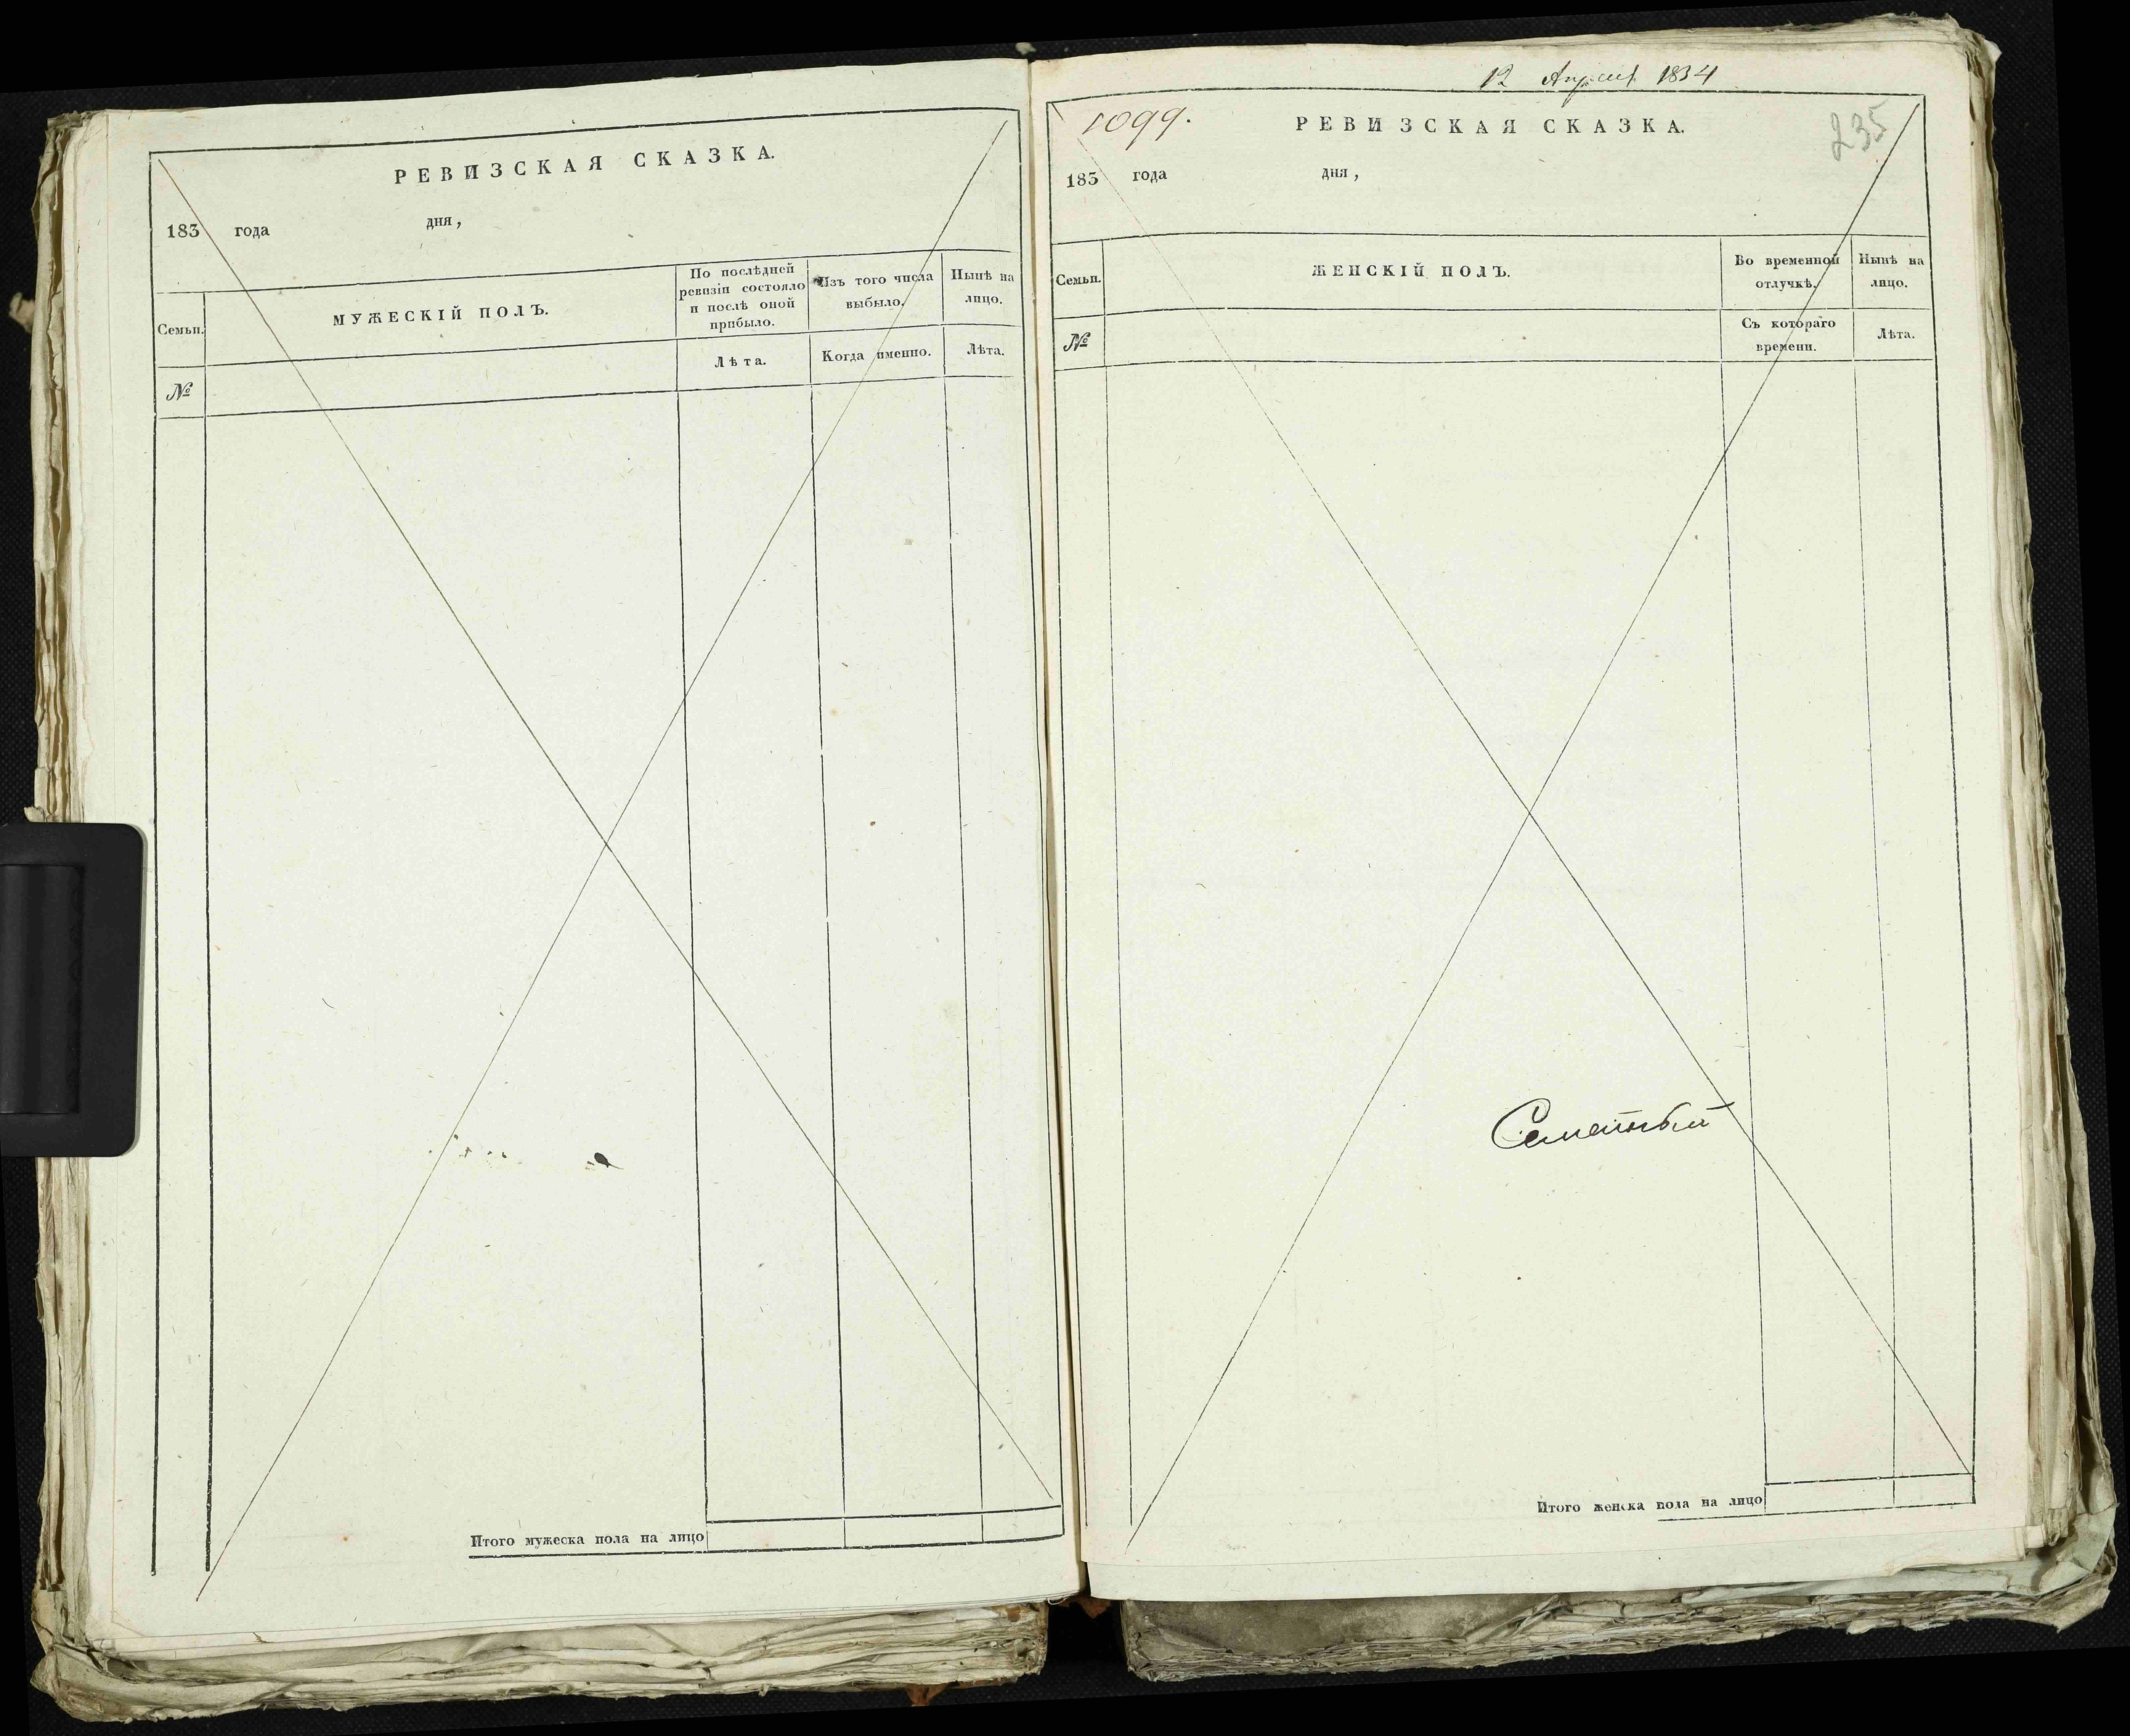 РЕВИЗСКАЯ СКАЗКА.
183 года дня,
Семьи.
МУЖЕСКІЙ ПОЛЪ.
По послѣдней
ревизіи состояло
и послѣ оной
прибыло.
Изъ того числа
выбыло.
Нынѣ на
лицо.
№
Лѣта.
Когда именно.
Лѣта.
Итого мужеска пола на лицо
12 Апреля 1834
1099.
235
РЕВИЗСКАЯ СКАЗКА.
183 года дня,
Семьи.
ЖЕНСКІЙ ПОЛЪ.
Во временной
отлучкѣ.
Нынѣ на
лицо.
№
Съ котораго
времени.
Лѣта.
Итого женска пола на лицо